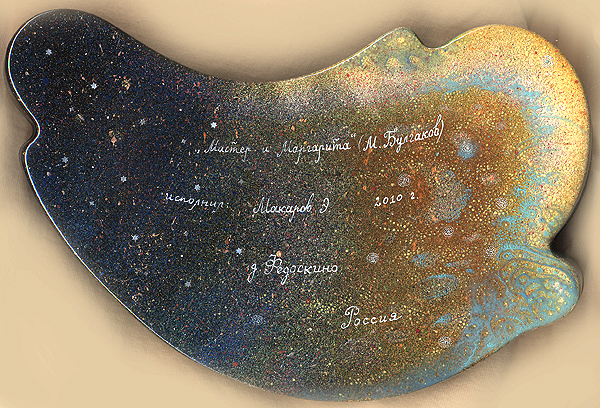 „Мастер и Маргарита“ (М. Булгаков)
исполнил: Макаров Э 2010 г.
д. Федоскино
Россия